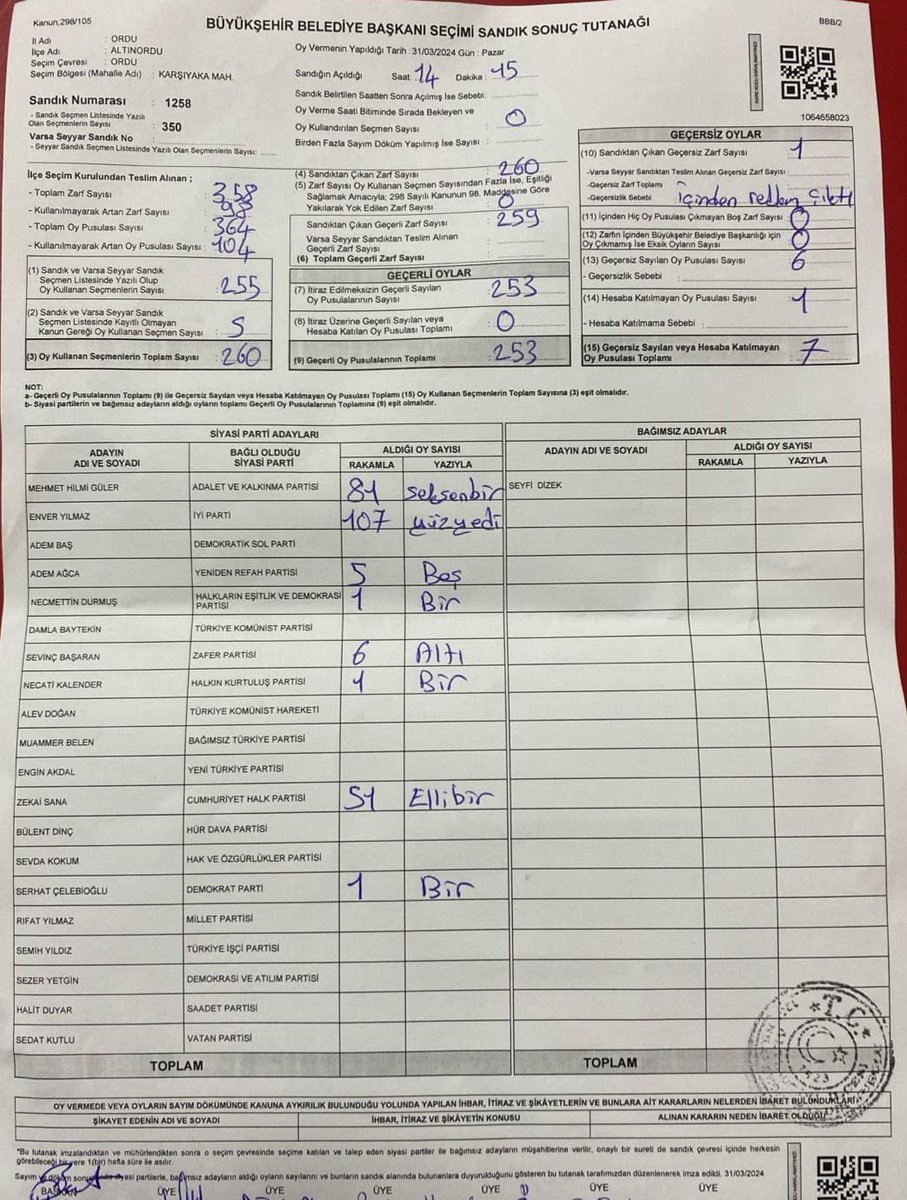 Kanun,298/105
BÜYÜKŞEHİR BELEDİYE BAŞKANI SEÇİMİ SANDIK SONUÇ TUTANAĞI
BBB/2
İl Adı : ORDU
İlçe Adı : ALTINORDU
Seçim Çevresi : ORDU
Seçim Bölgesi (Mahalle Adı) : KARŞIYAKA MAH.
Sandık Numarası : 1258
- Sandık Seçmen Listesinde Yazılı Olan Seçmenlerin Sayısı : 350
Varsa Seyyar Sandık No
- Seyyar Sandık Seçmen Listesinde Yazılı Olan Seçmenlerin Sayısı:
Oy Vermenin Yapıldığı Tarih : 31/03/2024 Gün : Pazar
Sandığın Açıldığı Saat: 14 Dakika : 45
Sandık Belirtilen Saatten Sonra Açılmış İse Sebebi:
Oy Verme Saati Bitiminde Sırada Bekleyen ve
Oy Kullandırılan Seçmen Sayısı : 0
Birden Fazla Sayım Döküm Yapılmış İse Sayısı :
1064658023
İlçe Seçim Kurulundan Teslim Alınan ;
- Toplam Zarf Sayısı : 358
- Kullanılmayarak Artan Zarf Sayısı : 98
- Toplam Oy Pusulası Sayısı : 364
- Kullanılmayarak Artan Oy Pusulası Sayısı : 104
(1) Sandık ve Varsa Seyyar Sandık
Seçmen Listesinde Yazılı Olup
Oy Kullanan Seçmenlerin Sayısı : 255
(2) Sandık ve Varsa Seyyar Sandık
Seçmen Listesinde Kayıtlı Olmayan
Kanun Gereği Oy Kullanan Seçmen Sayısı : 5
(3) Oy Kullanan Seçmenlerin Toplam Sayısı : 260
(4) Sandıktan Çıkan Zarf Sayısı : 260
(5) Zarf Sayısı Oy Kullanan Seçmen Sayısından Fazla İse, Eşitliği
Sağlamak Amacıyla; 298 Sayılı Kanunun 98. Maddesine Göre
Yakılarak Yok Edilen Zarf Sayısı : 0
Sandıktan Çıkan Geçerli Zarf Sayısı : 259
Varsa Seyyar Sandıktan Teslim Alınan
Geçerli Zarf Sayısı
(6) Toplam Geçerli Zarf Sayısı :
GEÇERLİ OYLAR
(7) İtiraz Edilmeksizin Geçerli Sayılan
Oy Pusulalarının Sayısı : 253
(8) İtiraz Üzerine Geçerli Sayılan veya
Hesaba Katılan Oy Pusulası Toplamı : 0
(9) Geçerli Oy Pusulalarının Toplamı : 253
GEÇERSİZ OYLAR
(10) Sandıktan Çıkan Geçersiz Zarf Sayısı : 1
-Varsa Seyyar Sandıktan Teslim Alınan Geçersiz Zarf Sayısı :
-Geçersiz Zarf Toplamı :
-Geçersizlik Sebebi : içinden çıktı
(11) İçinden Hiç Oy Pusulası Çıkmayan Boş Zarf Sayısı : 0
(12) Zarfın İçinden Büyükşehir Belediye Başkanlığı için
Oy Çıkmamış İse Eksik Oyların Sayısı : 0
(13) Geçersiz Sayılan Oy Pusulası Sayısı : 6
- Geçersizlik Sebebi :
(14) Hesaba Katılmayan Oy Pusulası Sayısı : 1
- Hesaba Katılmama Sebebi :
(15) Geçersiz Sayılan veya Hesaba Katılmayan
Oy Pusulası Toplamı : 7
NOT:
a- Geçerli Oy Pusulalarının Toplamı (9) ile Geçersiz Sayılan veya Hesaba Katılmayan Oy Pusulası Toplamı (15) Oy Kullanan Seçmenlerin Toplam Sayısına (3) eşit olmalıdır.
b- Siyasi partilerin ve bağımsız adayların aldığı oyların toplamı Geçerli Oy Pusulalarının Toplamına (9) eşit olmalıdır.
SİYASİ PARTİ ADAYLARI
BAĞIMSIZ ADAYLAR
ADAYIN ADI VE SOYADI BAĞLI OLDUĞU SİYASİ PARTİ ALDIĞI OY SAYISI RAKAMLA YAZIYLA
ADAYIN ADI VE SOYADI ALDIĞI OY SAYISI RAKAMLA YAZIYLA
MEHMET HİLMİ GÜLER ADALET VE KALKINMA PARTİSİ 81 seksenbir SEYFİ DİZEK
ENVER YILMAZ İYİ PARTİ 107 yüzyedi
ADEM BAŞ DEMOKRATİK SOL PARTİ
ADEM AĞCA YENİDEN REFAH PARTİSİ 5 Beş
NECMETTİN DURMUŞ HALKLARIN EŞİTLİK VE DEMOKRASİ PARTİSİ 1 Bir
DAMLA BAYTEKİN TÜRKİYE KOMÜNİST PARTİSİ
SEVİNÇ BAŞARAN ZAFER PARTİSİ 6 Altı
NECATİ KALENDER HALKIN KURTULUŞ PARTİSİ 1 Bir
ALEV DOĞAN TÜRKİYE KOMÜNİST HAREKETİ
MUAMMER BELEN BAĞIMSIZ TÜRKİYE PARTİSİ
ENGİN AKDAL YENİ TÜRKİYE PARTİSİ
ZEKAİ SANA CUMHURİYET HALK PARTİSİ 51 Ellibir
BÜLENT DİNÇ HÜR DAVA PARTİSİ
SEVDA KOKUM HAK VE ÖZGÜRLÜKLER PARTİSİ
SERHAT ÇELEBİOĞLU DEMOKRAT PARTİ 1 Bir
RIFAT YILMAZ MİLLET PARTİSİ
SEMİH YILDIZ TÜRKİYE İŞÇİ PARTİSİ
SEZER YETGİN DEMOKRASİ VE ATILIM PARTİSİ
HALİT DUYAR SAADET PARTİSİ
SEDAT KUTLU VATAN PARTİSİ
TOPLAM TOPLAM
T.C.
1923
OY VERMEDE VEYA OYLARIN SAYIM DÖKÜMÜNDE KANUNA AYKIRILIK BULUNDUĞU YOLUNDA YAPILAN İHBAR, İTİRAZ VE ŞİKAYETLERİN VE BUNLARA AİT KARARLARIN NELERDEN İBARET BULUNDUKLARI
ŞİKAYET EDENİN ADI VE SOYADI İHBAR, İTİRAZ VE ŞİKÂYETİN KONUSU ALINAN KARARIN NEDEN İBARET OLDUĞU
*Bu tutanak imzalandıktan ve mühürlendikten sonra o seçim çevresinde seçime katılan ve talep eden siyasi partiler ile bağımsız adayların müşahitlerine verilir, onaylı bir sureti de sandık çevresi içinde herkesin
görebileceği bir yere 1(bir) hafta süre ile asılır.
Sayım ve döküm sonu siyasi partilerle, bağımsız adayların aldığı oyların sayılarını ve bunların sandık alanında bulunanlara duyurulduğunu gösteren bu tutanak tarafımızdan düzenlenerek imza edildi. 31/03/2024
BAŞKAN ÜYE ÜYE ÜYE ÜYE ÜYE ÜYE